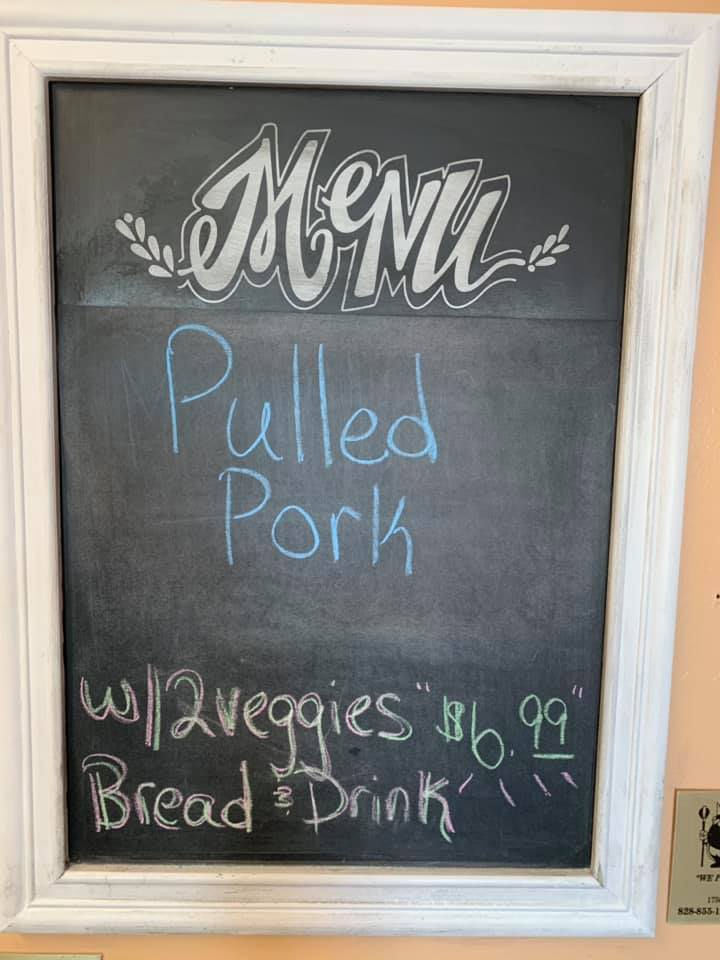 Menu
Pulled
Pork
w/2 veggies "$6.99"
Bread & Drink
"WE P
175
828-855-1